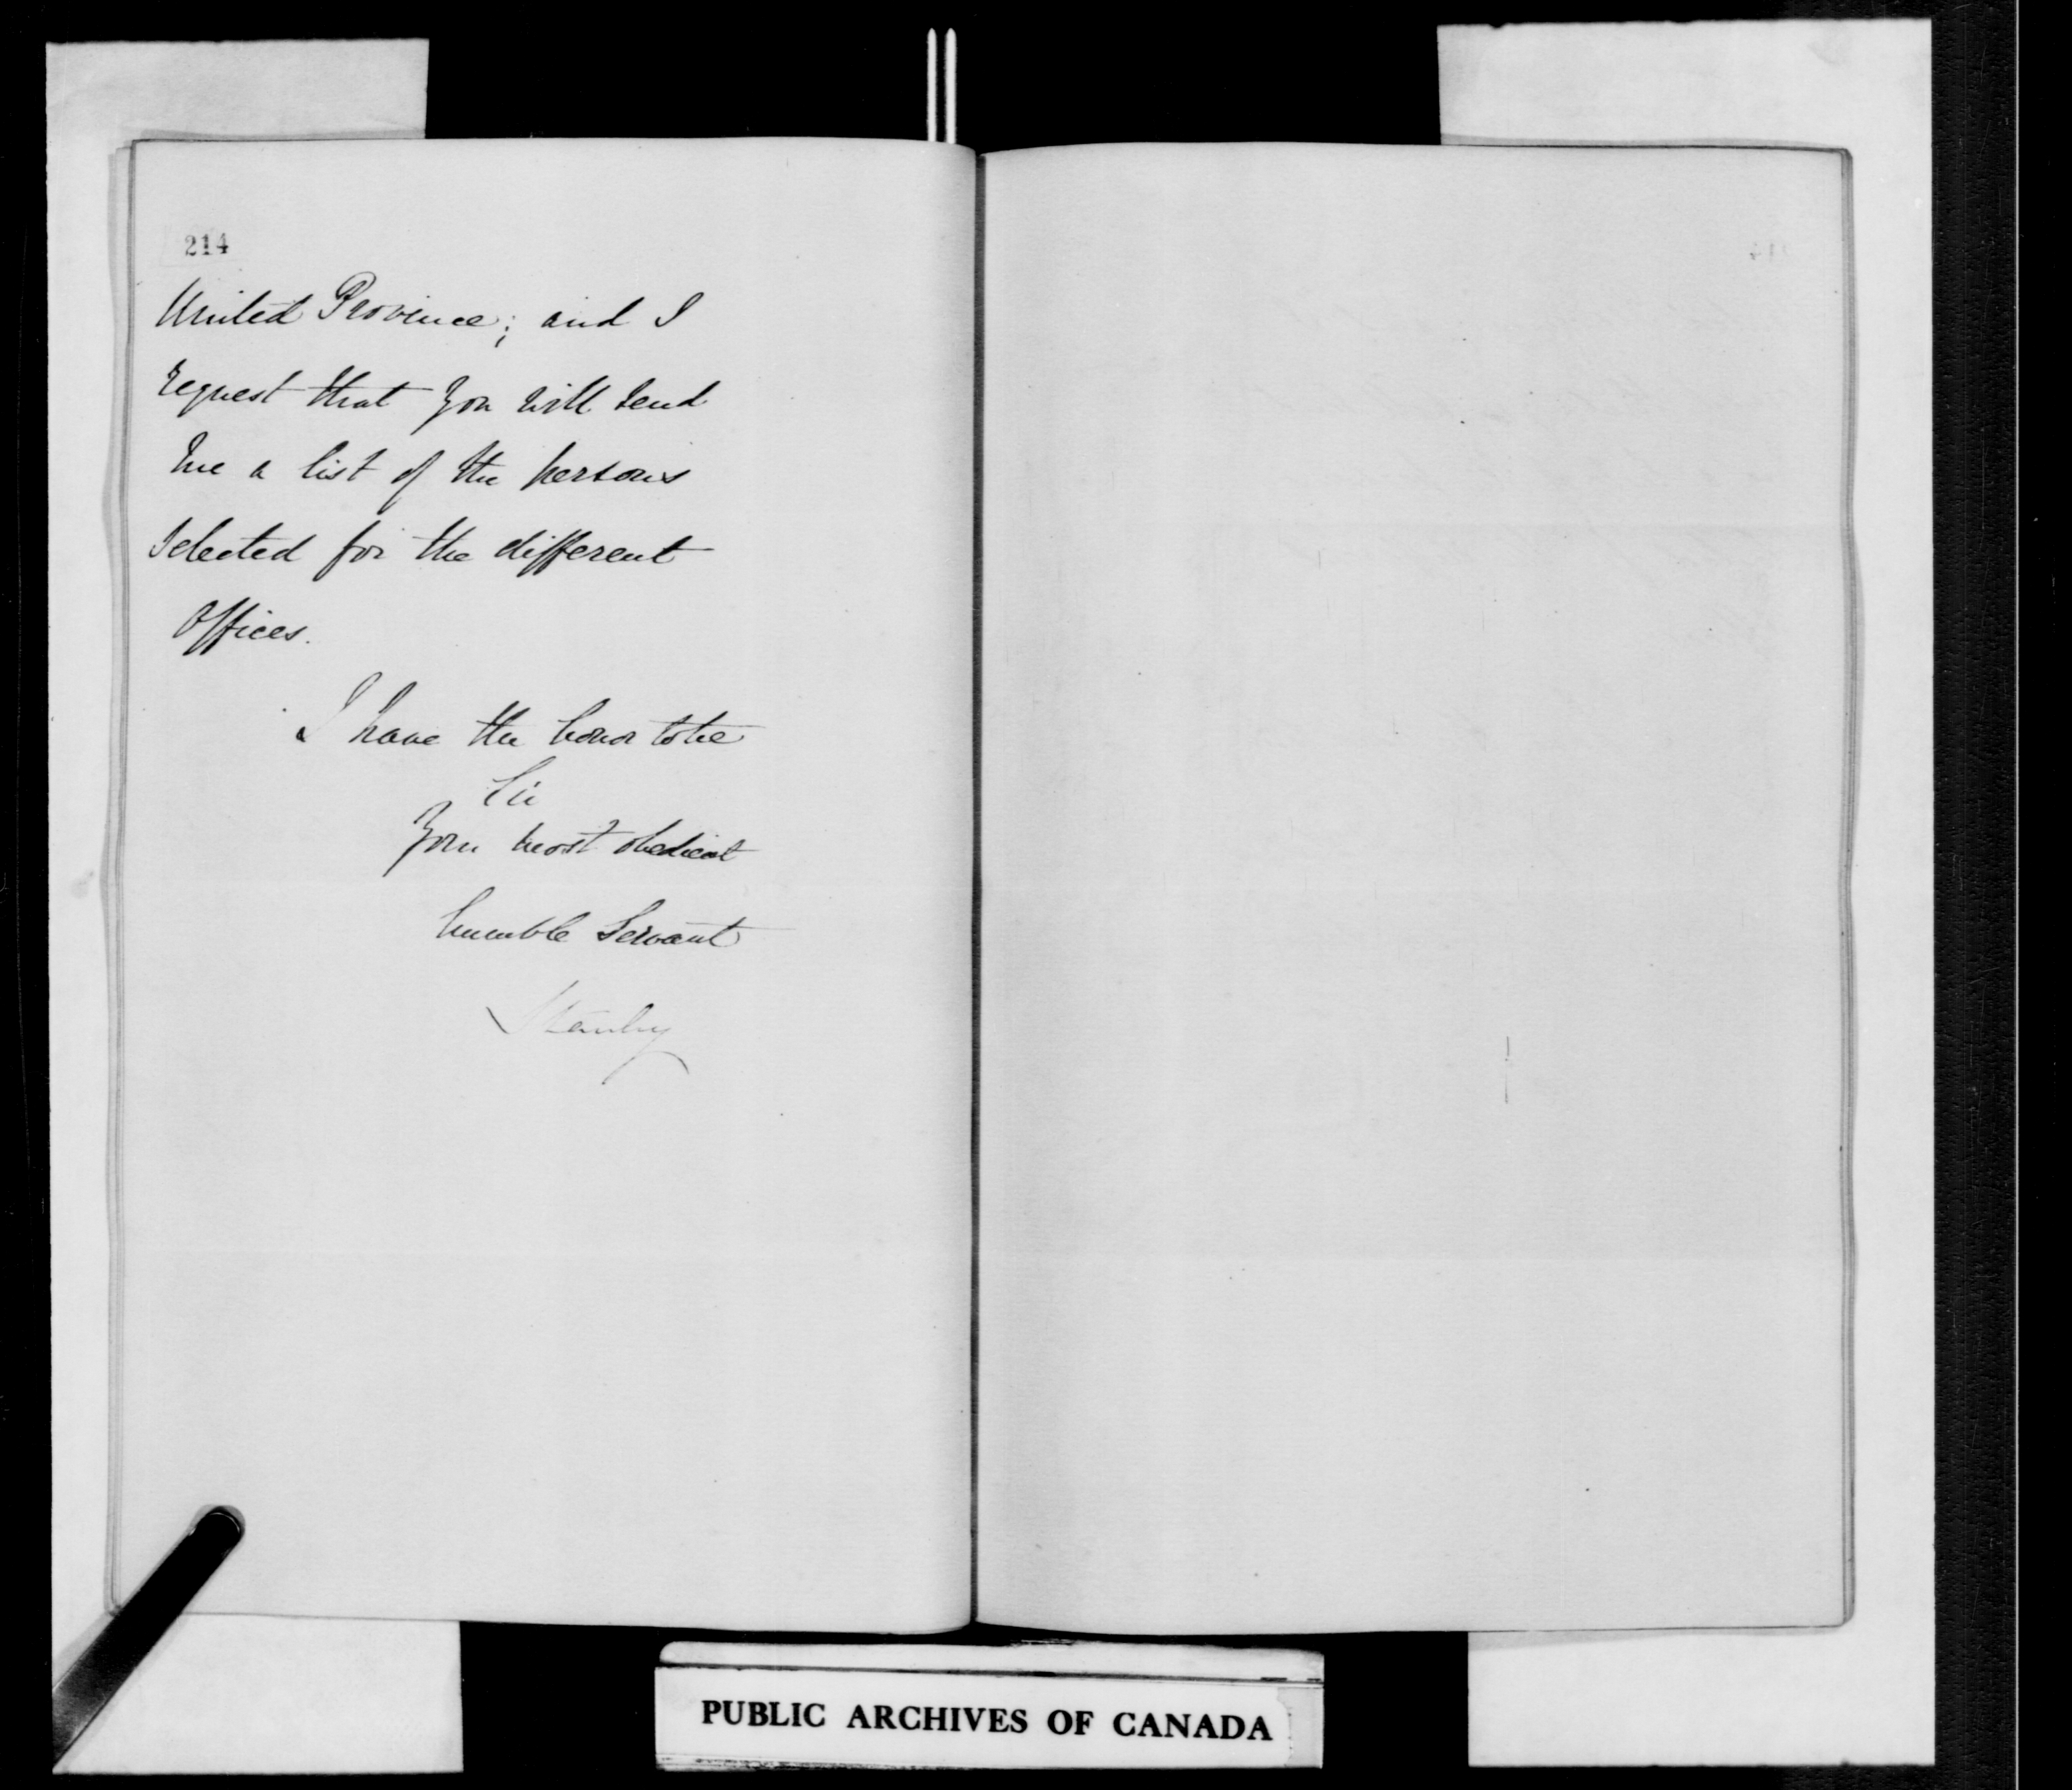 214
United Province; and I
request that you will send
me a list of the persons
selected for the different
Offices.
I have the honor to be
Sir
Your most obedient
humble Servant
Stanley
PUBLIC ARCHIVES OF CANADA